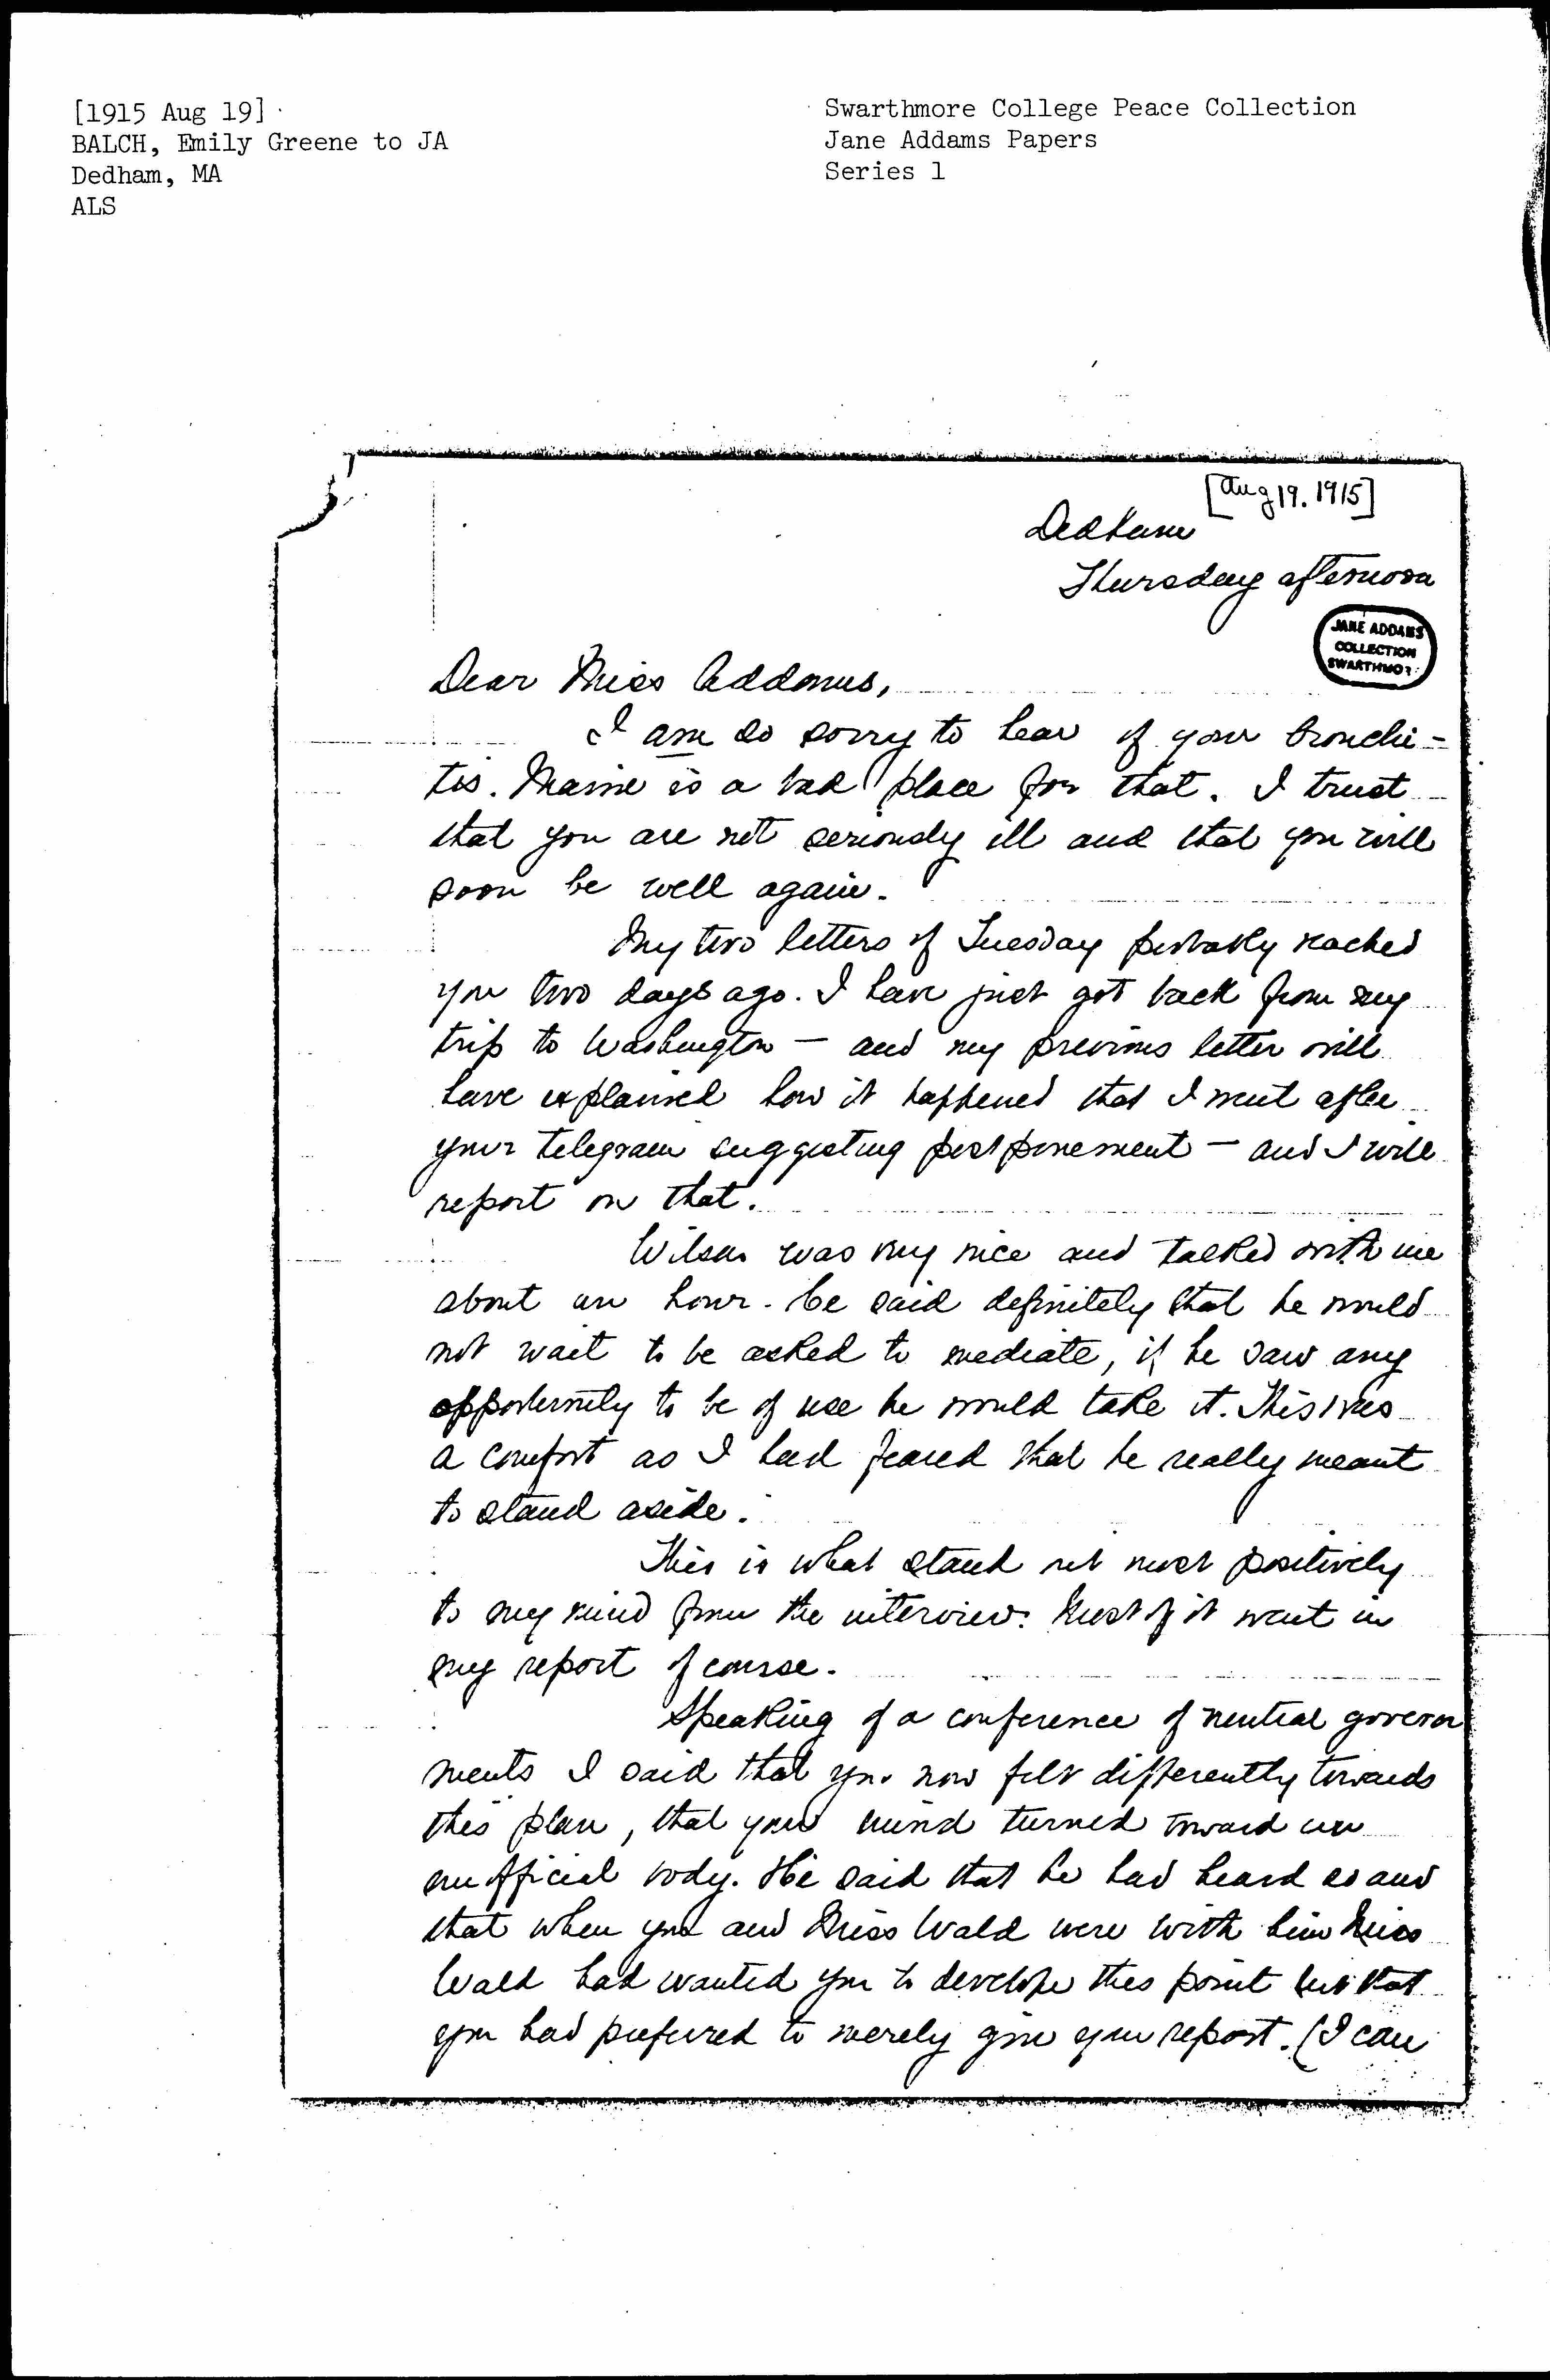 [1915 Aug 19]
BALCH, Emily Greene to JA
Dedham, MA
ALS
Swarthmore College Peace Collection
Jane Addams Papers
Series 1
[Aug 19. 1915]
Dedham
Thursday afternoon
JANE ADDAMS
COLLECTION
SWARTHMO
Dear Miss Addams,
I am so sorry to hear of your bronchi-
tis. Maine is a bad place for that. I trust
that you are not seriously ill and that you will
soon be well again.
My two letters of Tuesday probably reached
you two days ago. I have just got back from my
trip to Washington — and my previous letter will
have explained how it happened that I went after
your telegram suggesting postponement — and I will
report on that.
Wilson was very nice and talked with me
about an hour. He said definitely that he would
not wait to be asked to mediate, if he saw any
opportunity to be of use he would take it. This was
a comfort as I had feared that he really meant
to stand aside.
This is what stand out most positively
to my mind from the interview. Most of it went in
my report of course.
Speaking of a conference of neutral govern
ments I said that you now felt differently towards
this plan, that your mind turned toward an
unofficial body. He said that he had heard so and
that when you and Miss Wald were with him Miss
Wald had wanted you to develope this point but that
you had preferred to merely give your report. (I can